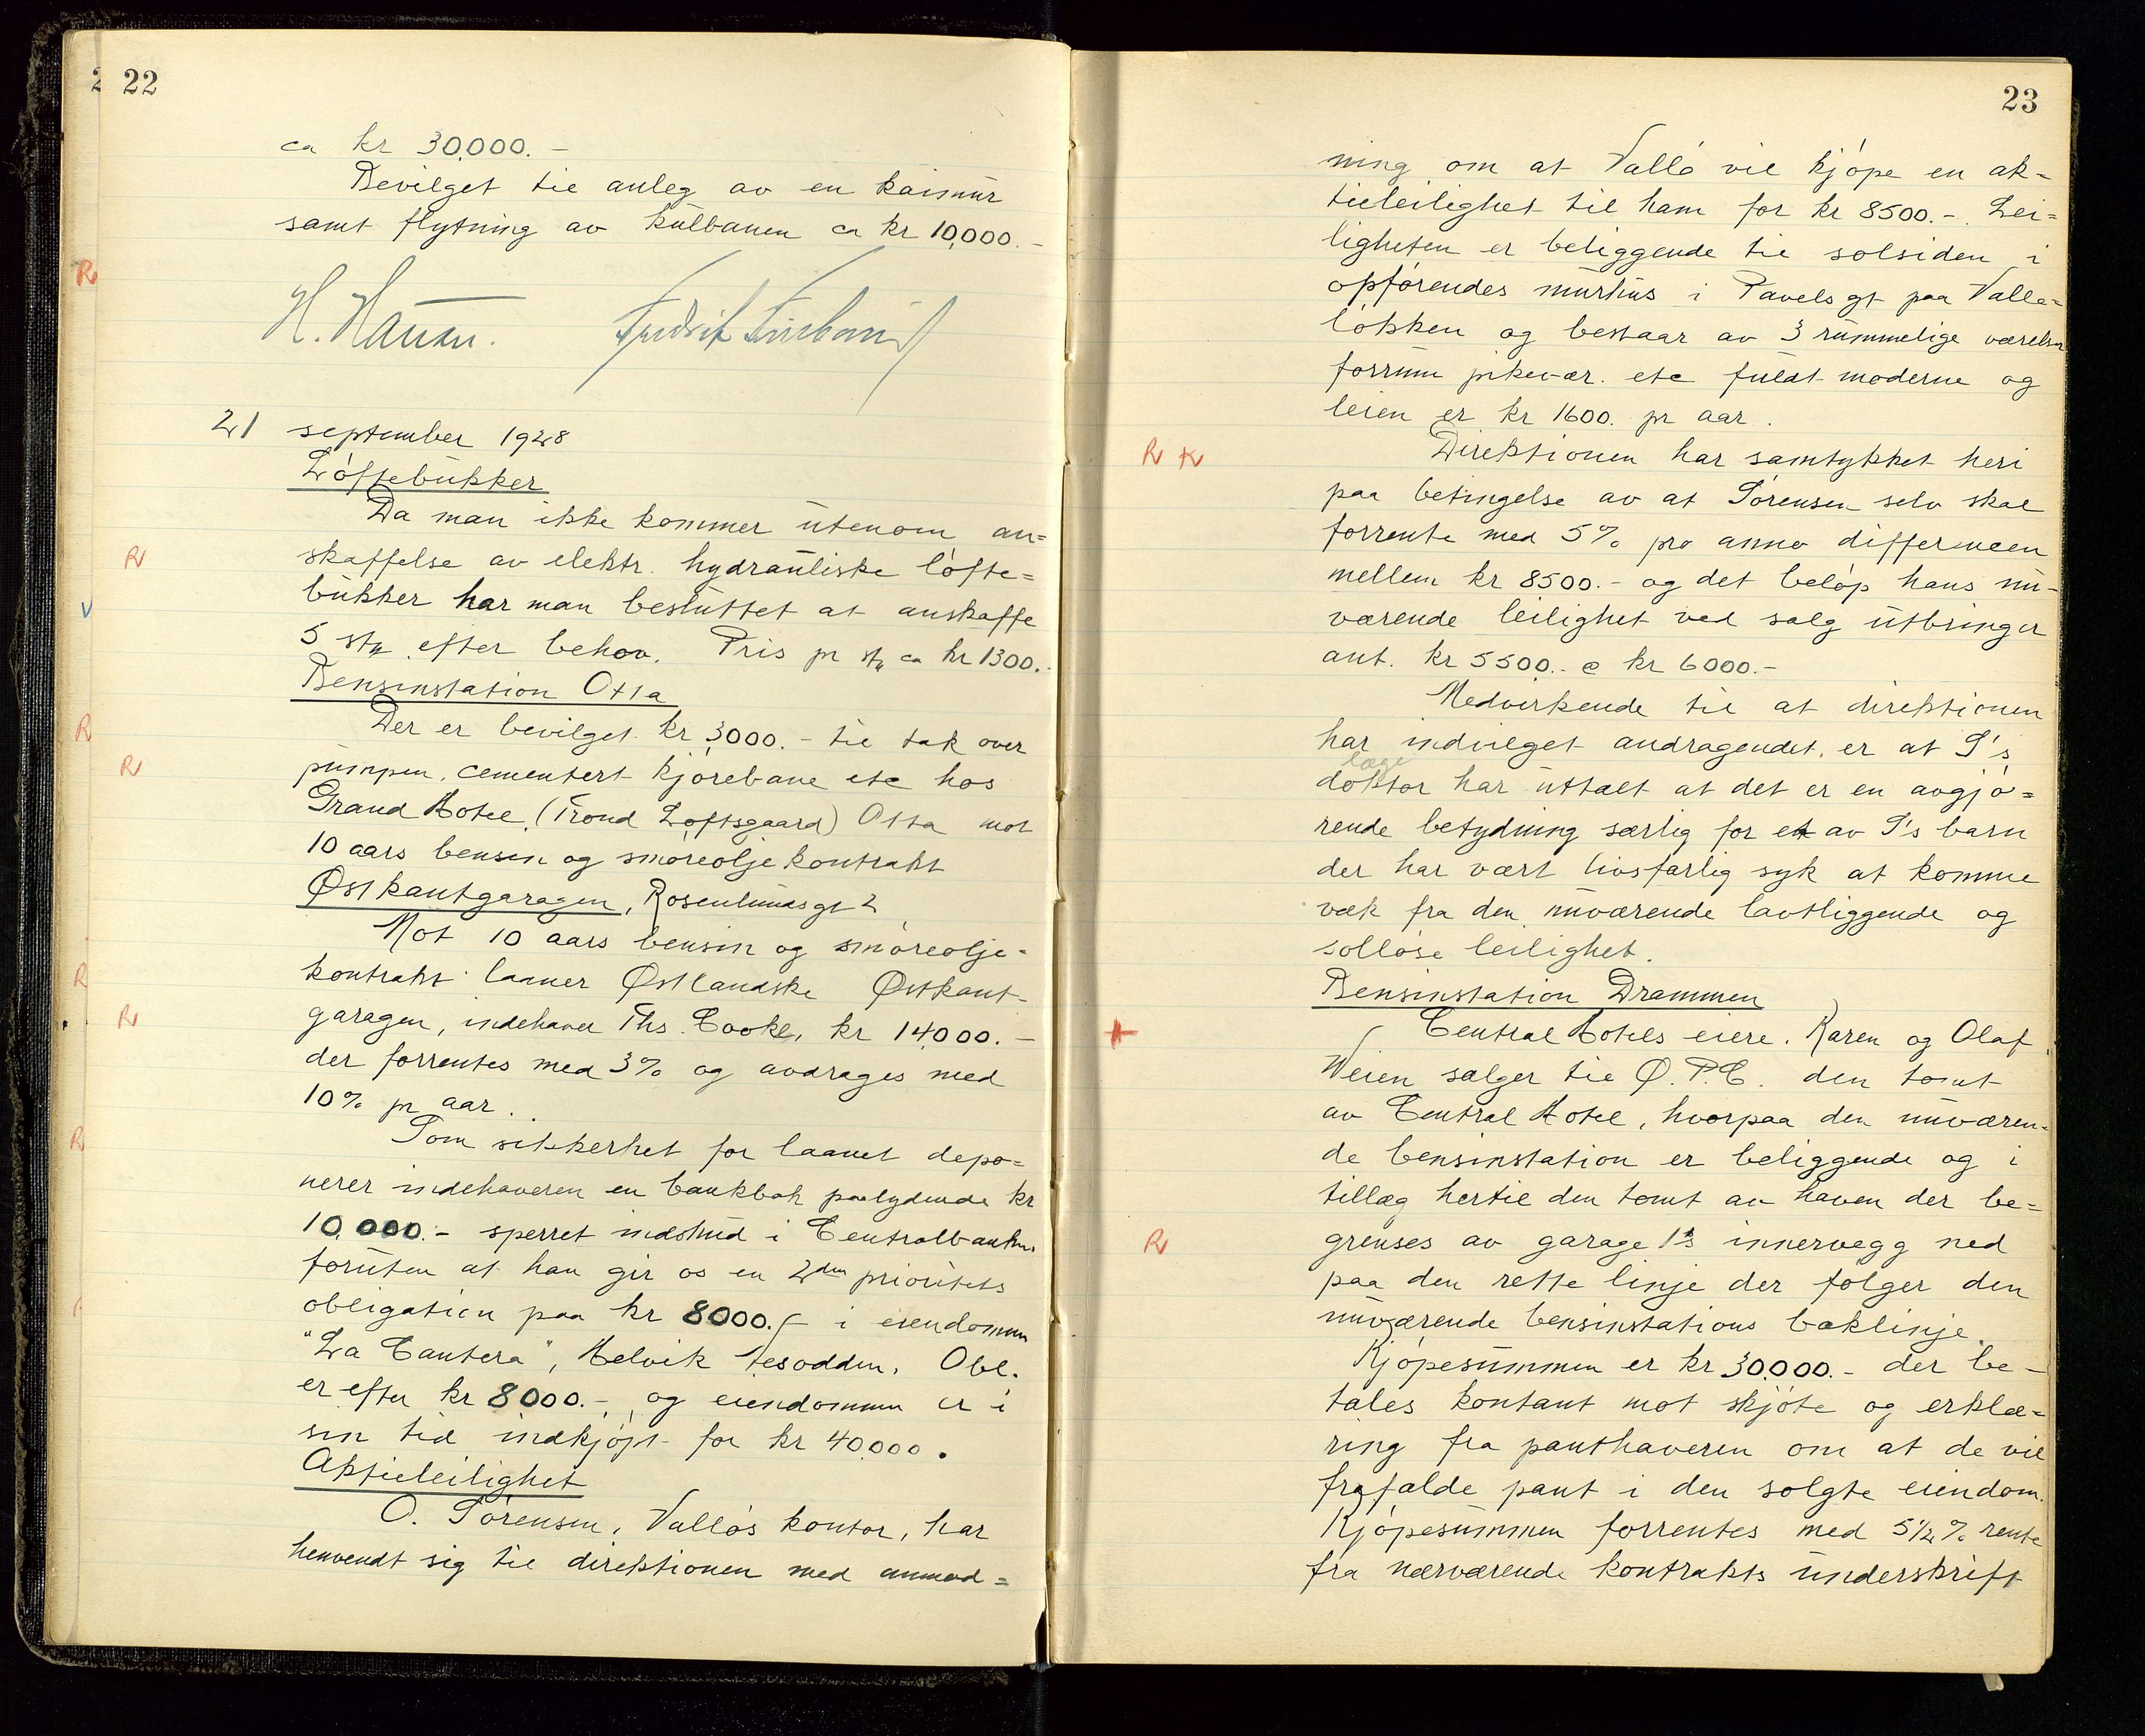 22
ca kr 30.000.-
Bevilget til anleg av en kaimur
samt flytning av kulbanen ca kr 10,000.-
H. Hansen.
21 september 1928
Löftebukker
Da man ikke kommer utenom an=
skaffelse av elektr. hydrauliske löfte=
bukker har man besluttet at anskaffe
5 stk efter behov. Pris pr stk ca kr 1300.-
Bensinstation Otta
Der er bevilget kr 3000.- til tak over
pumpen, cementert kjörebane etc hos
Grand Hotel (Trond Loftsgaard) Otta mot
10 aars bensin og smöreolje kontrakt
Østkantgaragen, Rosenlundsgt 2
Mot 10 aars bensin og smöreolje-
kontrakt laaner Østlandske Østkant-
garagen, indehaver Ths. Cooke, kr 14,000.-
der forrentes med 3% og avdrages med
10% pr aar.
Som sikkerhet for laanet depo=
nerer indehaveren en bankbok paalydende kr
10.000.- sperret indskud i Centralbanken
foruten at han gir os en 2den prioritets
obligation paa kr 8000.- i eiendommen
"La Cantera", Helvik Nesodden. Obl.
er efter kr 8000.- og eiendommen er i
sin tid indkjöpt for kr 40.000.
Aktieleilighet
O. Sörensen, Vallös kontor, har
henvendt sig til direktionen med anmod=
23
ning om at Vallö vil kjöpe en ak=
tieleilighet til ham for kr 8500.-. Lei=
ligheten er beliggende til solsiden i
opförendes murhus i Pavelsgt paa Valle=
lökken og bestaar av 3 rummelige værelser
forrum pikevær. etc fuldt moderne og
leien er kr 1600. pr aar.
R K Direktionen har samtykket heri
paa betingelse av at Sörensen selv skal
forrente med 5% pro anno differencen
mellem kr 8500.- og det belöp hans nu-
værende leilighet ved salg utbringer
ant. kr 5500.- a kr 6000.-
Medvirkende til at direktionen
har indvilget andragendet, er at S's
læge
doktor har uttalt at det er en avgjö=
rende betydning særlig for et av S's barn
der har vært livsfarlig syk at komme
væk fra den nuværende lavtliggende og
sollöse leilighet.
Bensinstation Drammen
Central Hotels eiere, Karen og Olaf
Weien sælger til Ø.P.C. den tomt
av Central Hotel, hvorpaa den nuværen-
de bensinstation er beliggende og i
tillæg hertil den tomt av haven der be=
grenses av garage 1's innervegg ned
paa den rette linje der fölger den
nuværende bensinstations baklinje.
Kjöpesummen er kr 30.000.- der be-
tales kontant mot skjöte og erklæ=
ring fra panthaveren om at de vil
frafalde pant i den solgte eiendom.
Kjöpesummen forrentes med 5½% rente
fra nærværende kontrakts underskrift